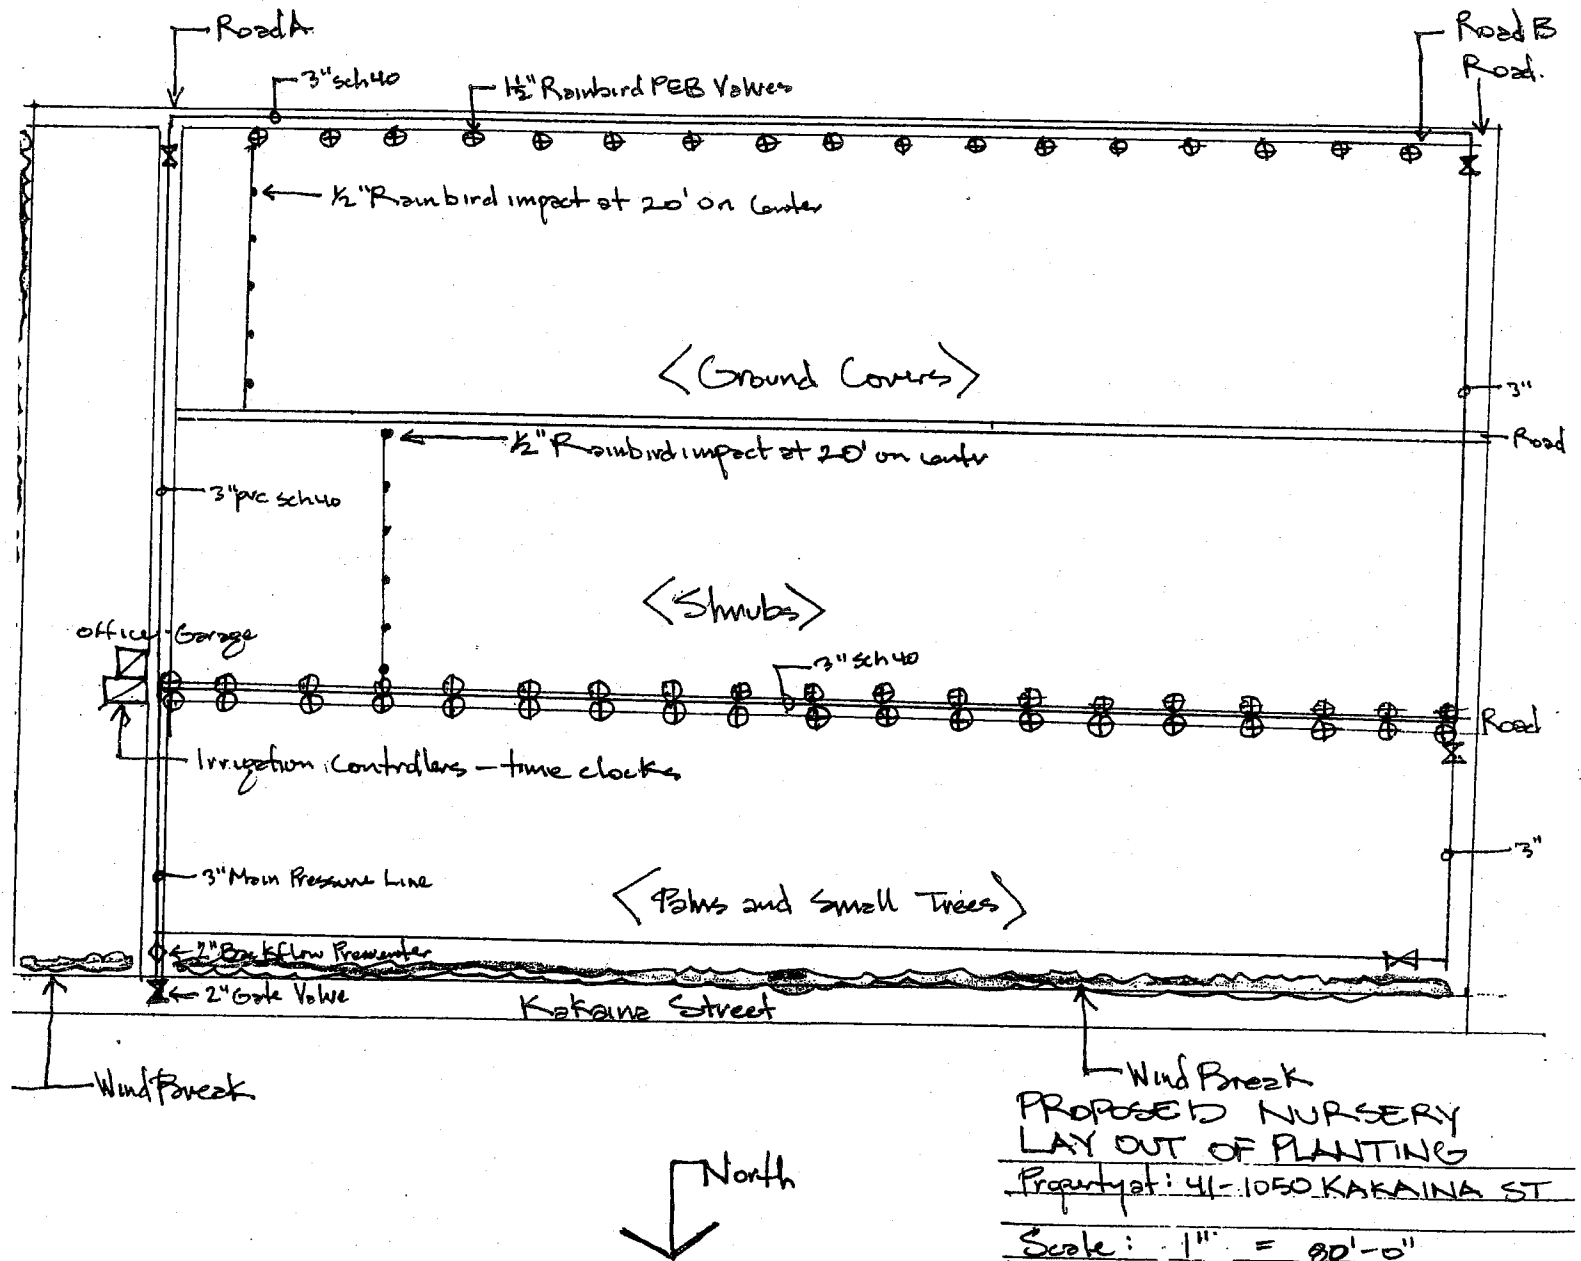 Road A
Road B
Road.
3" sch 40
1½" Rainbird PEB Valves
½" Rainbird impact at 20' on center
<Ground Covers>
3"
½" Rainbird impact at 20' on centr
Road
3" pvc sch 40
<Shrubs>
office Garage
3" sch 40
Road
Irrigation Controllers - time clocks
3"
3" Main Pressure Line
<Palms and Small Trees>
2" Backflow Preventer
2" Gate Valve
Kakaina Street
Wind Break
Wind Break
PROPOSED NURSERY
LAY OUT OF PLANTING
North
Property at: 41-1050 KAKAINA ST
Scale: 1" = 80'-0"